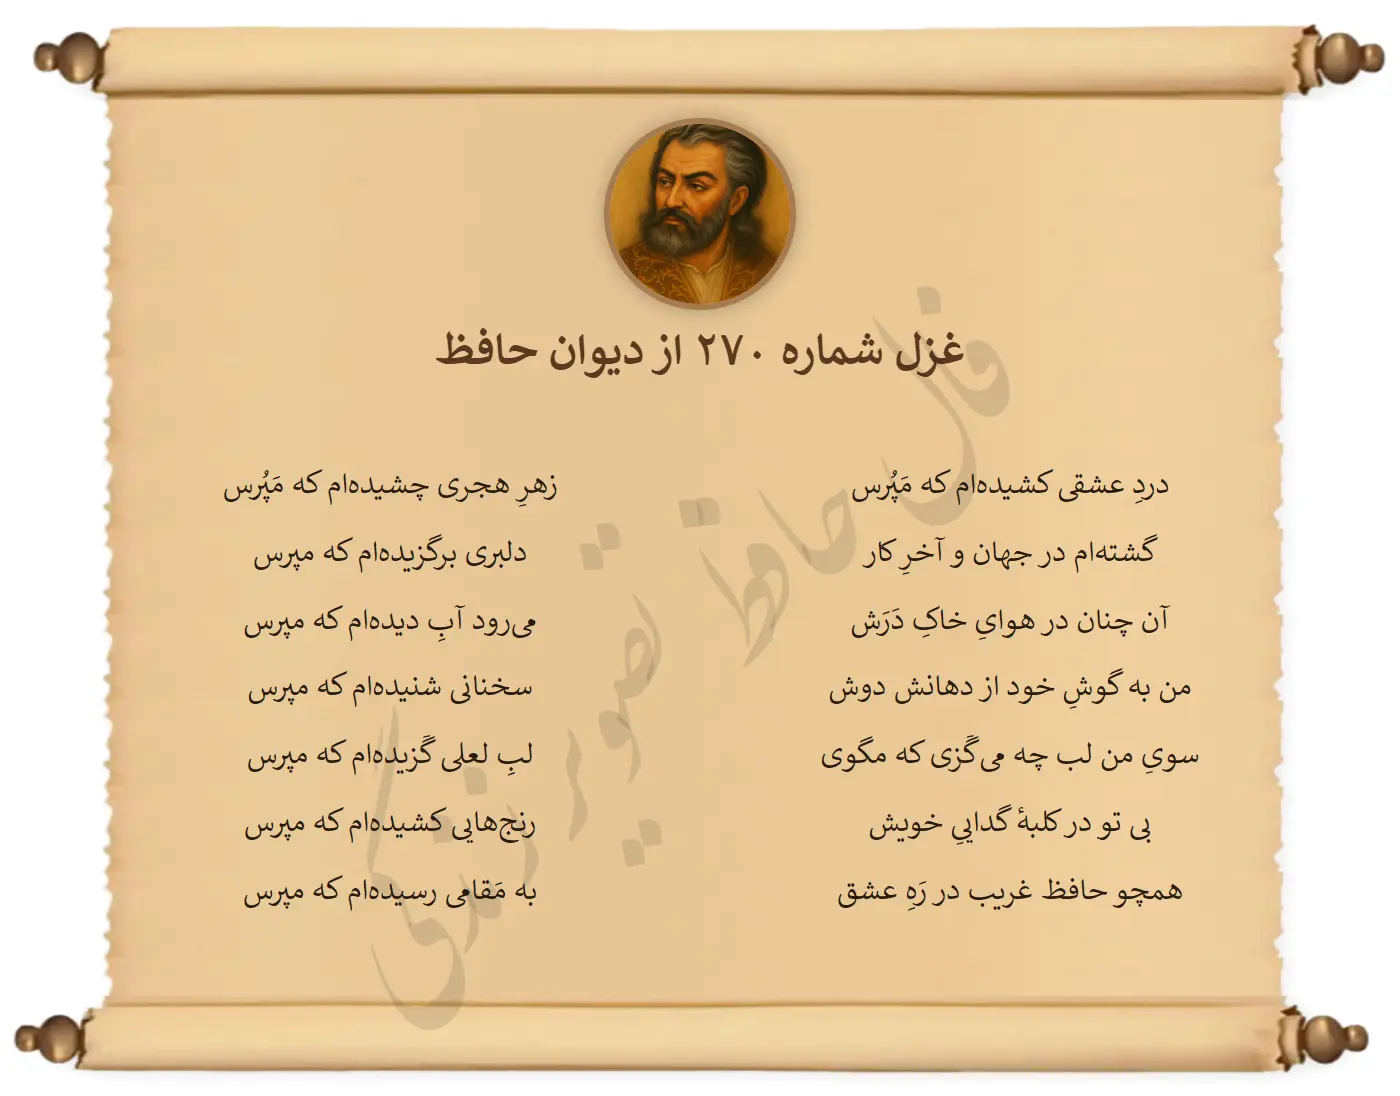 غزل شماره ۲۷۰ از دیوان حافظ
دردِ عشقی کشیده‌ام که مَپُرس زهرِ هجری چشیده‌ام که مَپُرس
گشته‌ام در جهان و آخرِ کار دلبری برگزیده‌ام که مپرس
آن چنان در هوایِ خاکِ دَرَش می‌رود آبِ دیده‌ام که مپرس
من به گوشِ خود از دهانش دوش سخنانی شنیده‌ام که مپرس
سویِ من لب چه می‌گَزی که مگوی لبِ لعلی گَزیده‌ام که مپرس
بی تو در کلبهٔ گداییِ خویش رنج‌هایی کشیده‌ام که مپرس
همچو حافظ غریب در رَهِ عشق به مَقامی رسیده‌ام که مپرس
فال حافظ تصویر زندگی